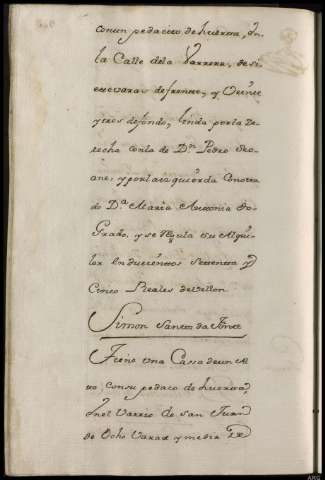 con un pedacito de huerta, en
la Calle dela Varrera, de si
ete varas de frente, y Veinte
y tres de fondo, linda por la De
recha con la de Dn. Pedro Seo
ane, y por la izquierda con otra
de Da. Maria Antonia do
Grado, y se regula su Alqui
ler en Duecientos Settenta y
Cinco Reales de vellon
Simon Santos da Fonte
Tiene Una Cassa de un Al
to, con su pedaco de huerta,
en el Varrio de San Juan
de Ocho Varas y media de